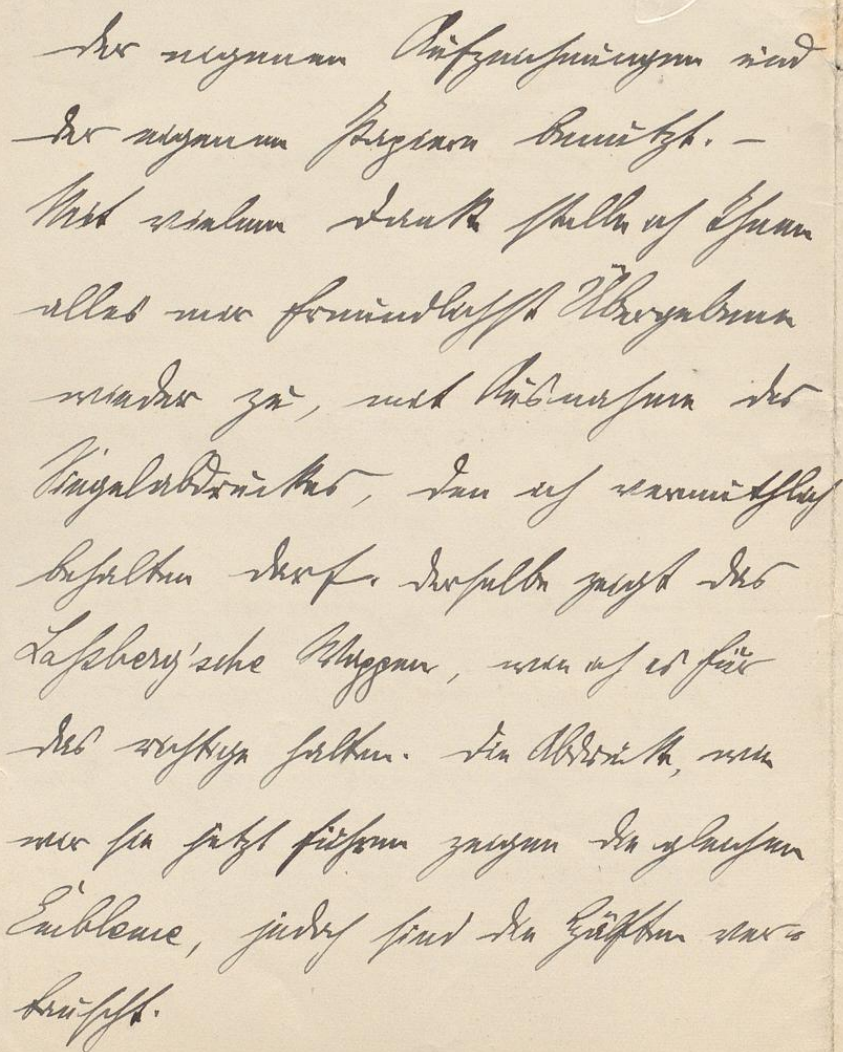 der eigenen Aufzeichnungen und
der eigenen Papiere benützt. –
Mit vielem Dank stelle ich Ihnen
alles mir freundlichst Übergebene
wieder zu, mit Ausnahme des
Siegelabdruckes, den ich vermuthlich
behalten darf. Derselbe zeigt das
Laßberg'sche Wappen, wie ich es für
das richtige halte. Die Abdrücke, wie
wir sie jetzt führen zeigen die gleichen
Embleme, jedoch sind die Hälften ver=
tauscht.